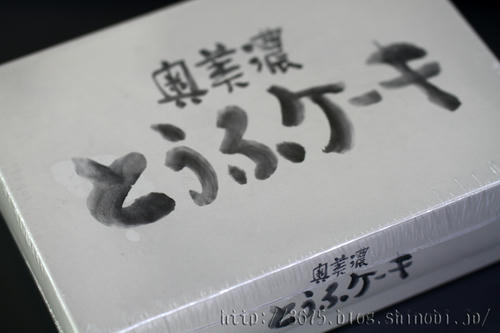 奥美濃
とうふケーキ
奥美濃
とうふケーキ
http://z3675.blog.shinobi.jp/